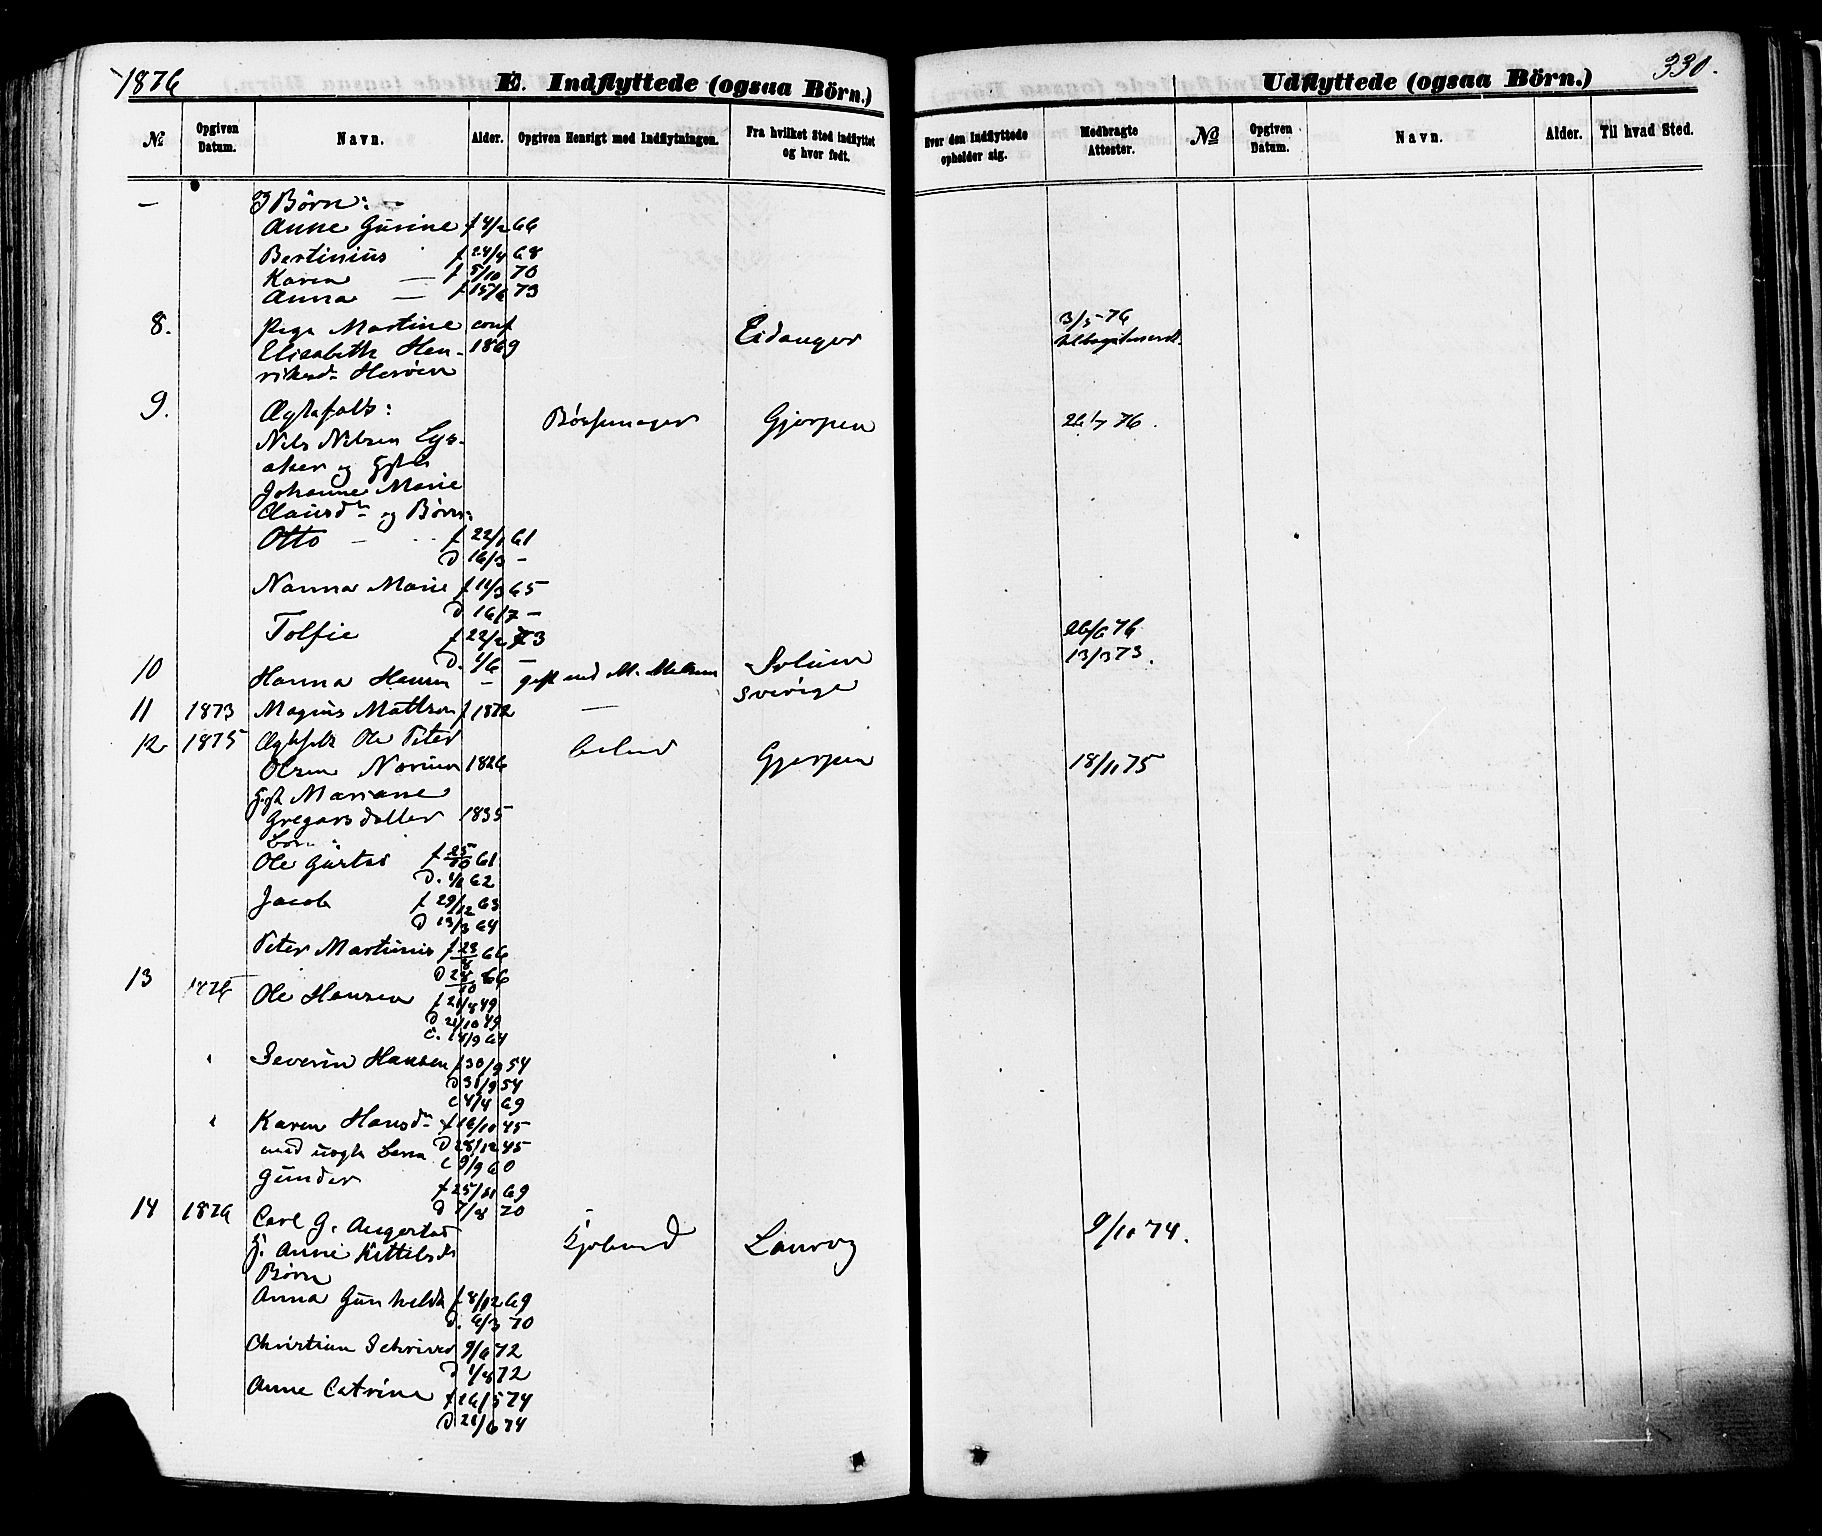 1876
E. Indflyttede (ogsaa Börn.)
№ Opgiven Datum. Navn. Alder. Opgiven Hensigt med Indflytningen. Fra hvilket Sted indflyttet og hvor født.
Udflyttede (ogsaa Börn.) 330.
Hvor den Indflyttede opholder sig. Medbragte Attester. № Opgiven Datum. Navn. Alder. Til hvad Sted.
— Børn:
Anne Gurine f 4/2 66
Bertinius f 24/4 68
Karen — f 5/10 70
Anna — f 15/6 73
8. Pige Martine conf Eidanger 3/5 76
Elisabeth Hen- 1869
riksd.
9. Ægtefolk: Bøssemager Gjerpen 26/7 76.
Nils Nilsen
aker og
Johanne Marie
Clausd og Børn:
Otto — f 22/1 61
D 16/3 —
Nanna Marie f 11/3 65
D 16/7 —
Tolfie f 22/2 73 26/6 76
D. 1/6 —
10 Hanna Hansen — gift med M. Solum 13/3 73.
Sverige
11 1873 Magnus Mattson f 1872 —
12 1875 Ægtefolk Ole Peter
Olsen 1826 Gjerpen 18/11 75
Mariane
Gregarsdatter 1835
Børn:
Ole Gustav f 25/10 61
D. 1/1 62
Jacob f 29/12 63
D 13/3 64
Peter Martinius f 23/8 66
D 28/10 66
13 1876 Ole Hansen f 21/8 49
D 21/10 49
C. 14/9 64
" Severin Hansen f 30/9 54
D 31/9 54
C 4/4 69
" Karen Hansd f 16/10 45
med uægte Børn D 28/12 45
C 9/9 60
Gunder f 25/11 69
D 7/8 70
14 1876 Carl G. Angerstad Kjøbmd Laurvig 9/10 74.
H. Anne Kittilsd
Børn
Anna Gunhilda f 8/12 69
D. 6/3 70
Christian Schriver 9/6 72
D 1/8 72
Anne Catrine f 26/5 74
D 21/6 74